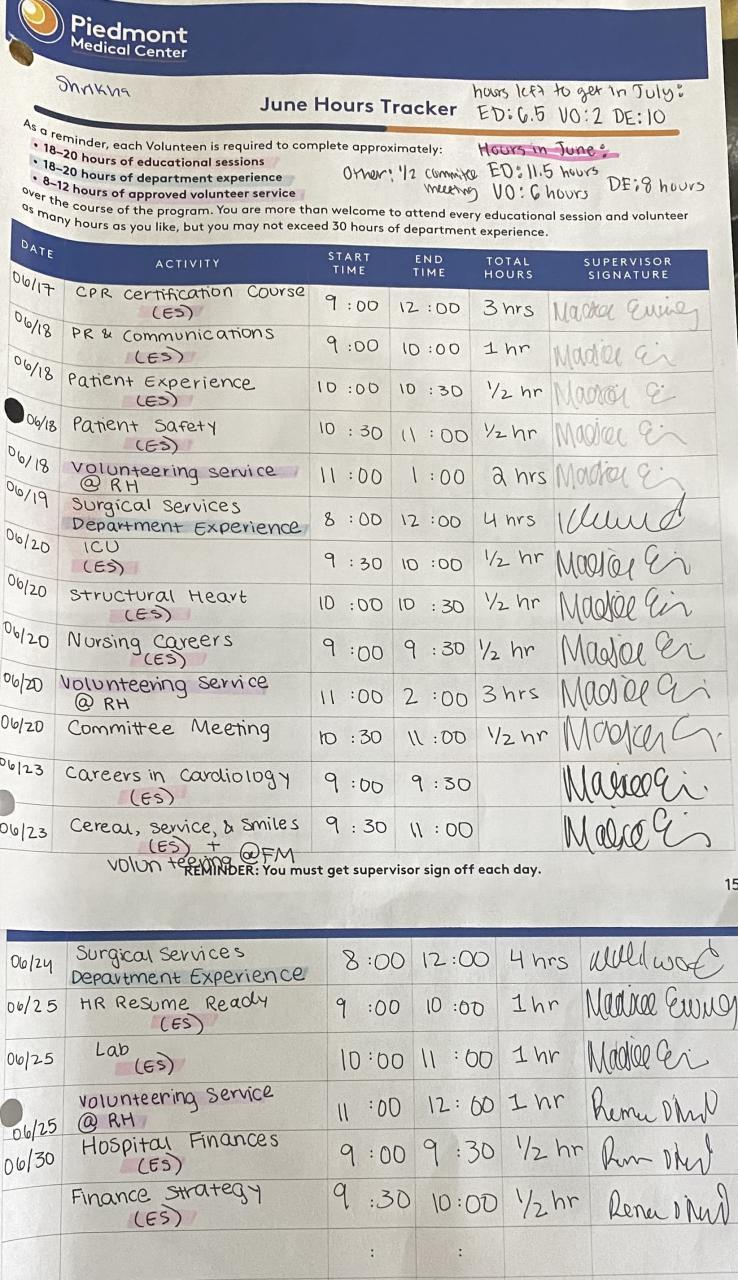 Piedmont
Medical Center
Shrikha
June Hours Tracker
hours left to get in July:
ED: 6.5 VO: 2 DE: 10
As a reminder, each Volunteer is required to complete approximately:
• 18–20 hours of educational sessions
• 18–20 hours of department experience
• 8–12 hours of approved volunteer service
Hours in June:
Other: 1/2 commitee meeting
ED: 11.5 hours
VO: 6 hours
DE: 8 hours
over the course of the program. You are more than welcome to attend every educational session and volunteer
as many hours as you like, but you may not exceed 30 hours of department experience.
DATE ACTIVITY START TIME END TIME TOTAL HOURS SUPERVISOR SIGNATURE
06/17 CPR Certification Course (ES) 9:00 12:00 3 hrs
06/18 PR & Communications (ES) 9:00 10:00 1 hr
06/18 Patient Experience (ES) 10:00 10:30 1/2 hr
06/18 Patient Safety (ES) 10:30 11:00 1/2 hr
06/18 Volunteering service @ RH 11:00 1:00 2 hrs
06/19 Surgical Services Department Experience 8:00 12:00 4 hrs
06/20 ICU (ES) 9:30 10:00 1/2 hr
06/20 Structural Heart (ES) 10:00 10:30 1/2 hr
06/20 Nursing Careers (ES) 9:00 9:30 1/2 hr
06/20 Volunteering Service @ RH 11:00 2:00 3 hrs
06/20 Committee Meeting 10:30 11:00 1/2 hr
06/23 Careers in Cardiology (ES) 9:00 9:30
06/23 Cereal, Service, & Smiles (ES) + volunteering @FM 9:30 11:00
REMINDER: You must get supervisor sign off each day.
15
06/24 Surgical Services Department Experience 8:00 12:00 4 hrs
06/25 HR Resume Ready (ES) 9:00 10:00 1 hr
06/25 Lab (ES) 10:00 11:00 1 hr
06/25 Volunteering Service @ RH 11:00 12:00 1 hr
06/30 Hospital Finances (ES) 9:00 9:30 1/2 hr
Finance Strategy (ES) 9:30 10:00 1/2 hr
: :